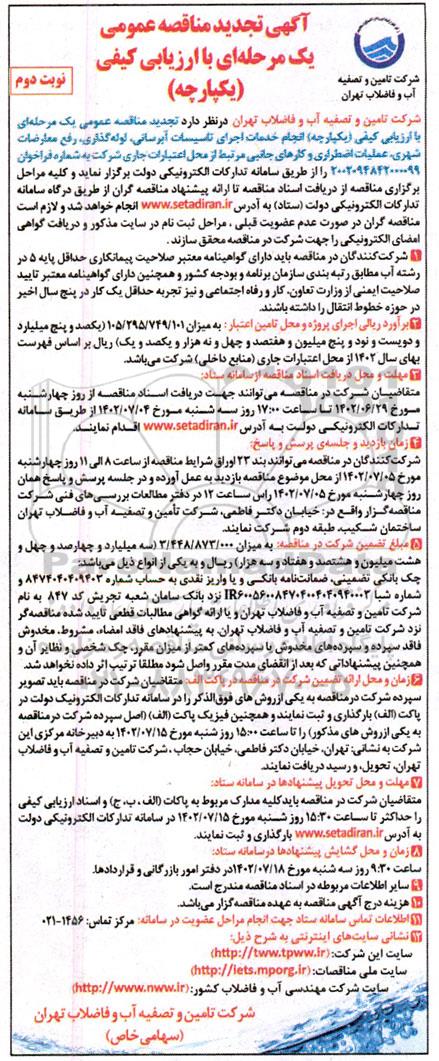 آگهی تجدید مناقصه عمومی
یک مرحله‌ای با ارزیابی کیفی
(یکپارچه)
شرکت تامین و تصفیه
آب و فاضلاب تهران
نوبت دوم
شرکت تامین و تصفیه آب و فاضلاب تهران درنظر دارد تجدید مناقصه عمومی یک مرحله‌ای
با ارزیابی کیفی (یکپارچه) انجام خدمات اجرای تاسیسات آبرسانی، لوله‌گذاری، رفع معارضات
شهری، عملیات اضطراری و کارهای جانبی مرتبط از محل اعتبارات جاری شرکت به شماره فراخوان
۲۰۰۲۰۹۴۸۴۲۰۰۰۰۹۹ را از طریق سامانه تدارکات الکترونیکی دولت برگزار نماید و کلیه مراحل
برگزاری مناقصه از دریافت اسناد مناقصه تا ارائه پیشنهاد مناقصه گران از طریق درگاه سامانه
تدارکات الکترونیکی دولت (ستاد) به آدرس www.setadiran.ir انجام خواهد شد و لازم است
مناقصه گران در صورت عدم عضویت قبلی ، مراحل ثبت نام در سایت مذکور و دریافت گواهی
امضای الکترونیکی را جهت شرکت در مناقصه محقق سازند .
۱ شرکت‌کنندگان در مناقصه باید دارای گواهینامه معتبر صلاحیت پیمانکاری حداقل پایه ۵ در
رشته آب مطابق رتبه بندی سازمان برنامه و بودجه کشور و همچنین دارای گواهینامه معتبر تایید
صلاحیت ایمنی از وزارت تعاون، کار و رفاه اجتماعی و نیز تجربه حداقل یک کار در پنج سال اخیر
در حوزه خطوط انتقال را داشته باشند.
۲ برآورد ریالی اجرای پروژه و محل تامین اعتبار : به میزان ۱۰۵/۲۹۵/۷۴۹/۱۰۱ (یکصد و پنج میلیارد
و دویست و نود و پنج میلیون و هفتصد و چهل و نه هزار و یکصد و یک) ریال بر اساس فهرست
بهای سال ۱۴۰۲ از محل اعتبارات جاری (منابع داخلی) شرکت می‌باشد.
۳ مهلت و محل دریافت اسناد مناقصه از سامانه ستاد:
متقاضیان شرکت در مناقصه می‌توانند جهت دریافت اسناد مناقصه از روز چهارشنبه
مورخ ۱۴۰۲/۰۶/۲۹ تا ساعت ۱۷:۰۰ روز سه شنبه مورخ ۱۴۰۲/۰۷/۰۴ از طریق سامانه
تدارکات الکترونیکی دولت به آدرس www.setadiran.ir اقدام نمایند.
۴ زمان بازدید و جلسه‌ی پرسش و پاسخ:
شرکت‌کنندگان در مناقصه می‌توانند بند ۲۳ اوراق شرایط مناقصه از ساعت ۸ الی ۱۱ روز چهارشنبه
مورخ ۱۴۰۲/۰۷/۰۵ از محل موضوع مناقصه بازدید به عمل آورده و در جلسه پرسش و پاسخ همان
روز چهارشنبه مورخ ۱۴۰۲/۰۷/۰۵ راس ساعت ۱۲ در دفتر مطالعات بررسی‌های فنی شرکت
مناقصه‌گزار واقع در: خیابان دکتر فاطمی، شرکت تأمین و تصفیه آب و فاضلاب تهران
ساختمان شکیب، طبقه دوم شرکت نمایند.
۵ مبلغ تضمین شرکت در مناقصه: به میزان ۳/۴۴۸/۸۷۳/۰۰۰ (سه میلیارد و چهارصد و چهل و
هشت میلیون و هشتصد و هفتاد و سه هزار) ریال و به یکی از انواع ذیل می‌باشد:
چک بانکی تضمینی، ضمانت‌نامه بانکی و یا واریز نقدی به حساب شماره ۸۴۷۴۰۴۰۴۰۹۴۰۳ و
نزد بانک سامان شعبه تجریش کد ۸۴۷ به نام
شرکت تامین و تصفیه آب و فاضلاب تهران و یا ارائه گواهی مطالبات قطعی تایید شده مناقصه‌گر
نزد شرکت تامین و تصفیه آب و فاضلاب تهران. به پیشنهادهای فاقد امضاء، مشروط، مخدوش
فاقد سپرده و سپرده‌های مخدوش یا سپرده‌های کمتر از میزان مقرر، چک شخصی و نظایر آن و
همچنین پیشنهاداتی که بعد از انقضای مدت مقرر واصل شود مطلقا ترتیب اثر داده نخواهد شد.
۶ زمان و محل ارائه تضمین شرکت در مناقصه در پاکت الف: متقاضیان شرکت در مناقصه باید تصویر
سپرده شرکت در مناقصه به یکی از روش های فوق الذکر را در سامانه تدارکات الکترونیک دولت در
پاکت (الف) بارگذاری و ثبت نمایند و همچنین فیزیک پاکت (الف) (اصل سپرده شرکت در مناقصه
به یکی از روش های مذکور) را تا ساعت ۱۵:۰۰ روز شنبه مورخ ۱۴۰۲/۰۷/۱۵ به دبیرخانه مرکزی این
شرکت به نشانی: تهران، خیابان دکتر فاطمی، خیابان حجاب ، شرکت تامین و تصفیه آب و فاضلاب
تهران، تحویل، و رسید دریافت نمایند.
۷ مهلت و محل تحویل پیشنهادها در سامانه ستاد:
متقاضیان شرکت در مناقصه باید کلیه مدارک مربوط به پاکات (الف، ب، ج) و اسناد ارزیابی کیفی
را حداکثر تا ساعت ۱۵:۳۰ روز شنبه مورخ ۱۴۰۲/۰۷/۱۵ در سامانه تدارکات الکترونیکی دولت
به آدرس www.setadiran.ir بارگذاری و ثبت نمایند.
۸ زمان و محل گشایش پیشنهادها در سامانه ستاد:
ساعت ۹:۳۰ روز سه شنبه مورخ ۱۴۰۲/۰۷/۱۸ در دفتر امور بازرگانی و قراردادها.
۹ سایر اطلاعات مربوطه در اسناد مناقصه مندرج است.
۱۰ هزینه درج آگهی مناقصه به عهده مناقصه‌گزار می‌باشد.
۱۱ اطلاعات تماس سامانه ستاد جهت انجام مراحل عضویت در سامانه: مرکز تماس: ۱۴۵۶-۰۲۱
۱۲ نشانی سایت‌های اینترنتی به شرح ذیل:
سایت این شرکت: (http://tww.tpww.ir)
سایت ملی مناقصات: (http://iets.mporg.ir)
سایت شرکت مهندسی آب و فاضلاب کشور: (http://www.nww.ir)
شرکت تامین و تصفیه آب و فاضلاب تهران
(سهامی خاص)